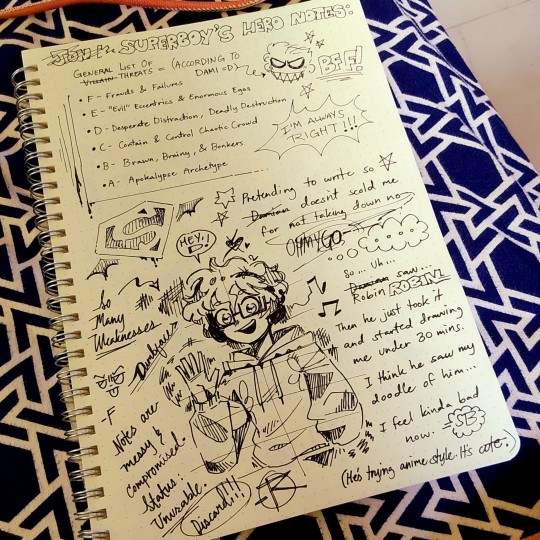 SUPERBOY'S HERO NOTES:
GENERAL LIST OF
VILLAIN THREATS = (ACCORDING TO
DAMI =D)
BFF!
• F - Frauds & Failures
• E - "Evil" Eccentrics & Enormous Egos
• D - Desperate Distraction, Deadly Destruction
• C - Contain & Control Chaotic Crowd
• B - Brawn, Brainy, & Bonkers
• A - Apokalypse Archetype
I'M ALWAYS
RIGHT!!!
Pretending to write so
Damian doesn't scold me
for not taking down no
OHMYGO
HEY!
So ... Uh ...
Damian saw...
Robin ROBIN!
Then he just took it
and started drawing
me under 30 mins.
I think he saw my
doodle of him...
I feel kinda bad
now. SB
(He's trying anime style. It's cute.)
So
Many
Weaknesses
Dumbface
-F
Notes are
messy &
compromised.
Status:
Unusable.
Discard!!!
R